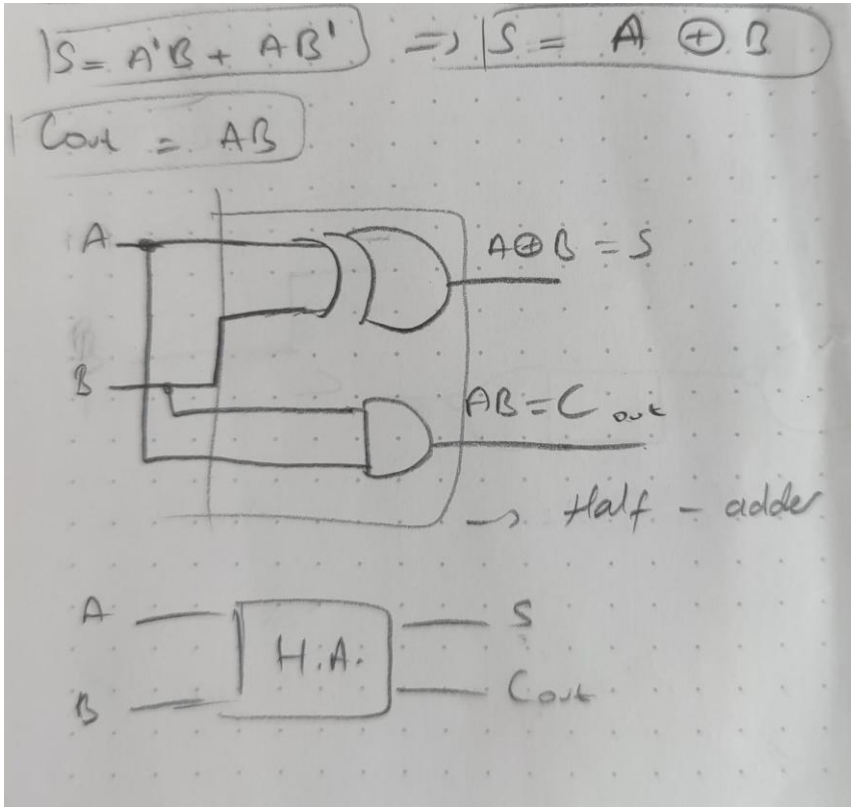 S = A'B + AB' => S = A ⊕ B
Cout = AB
A
A⊕B = S
B
AB = Cout
→ Half - adder
A
S
H.A.
B
Cout